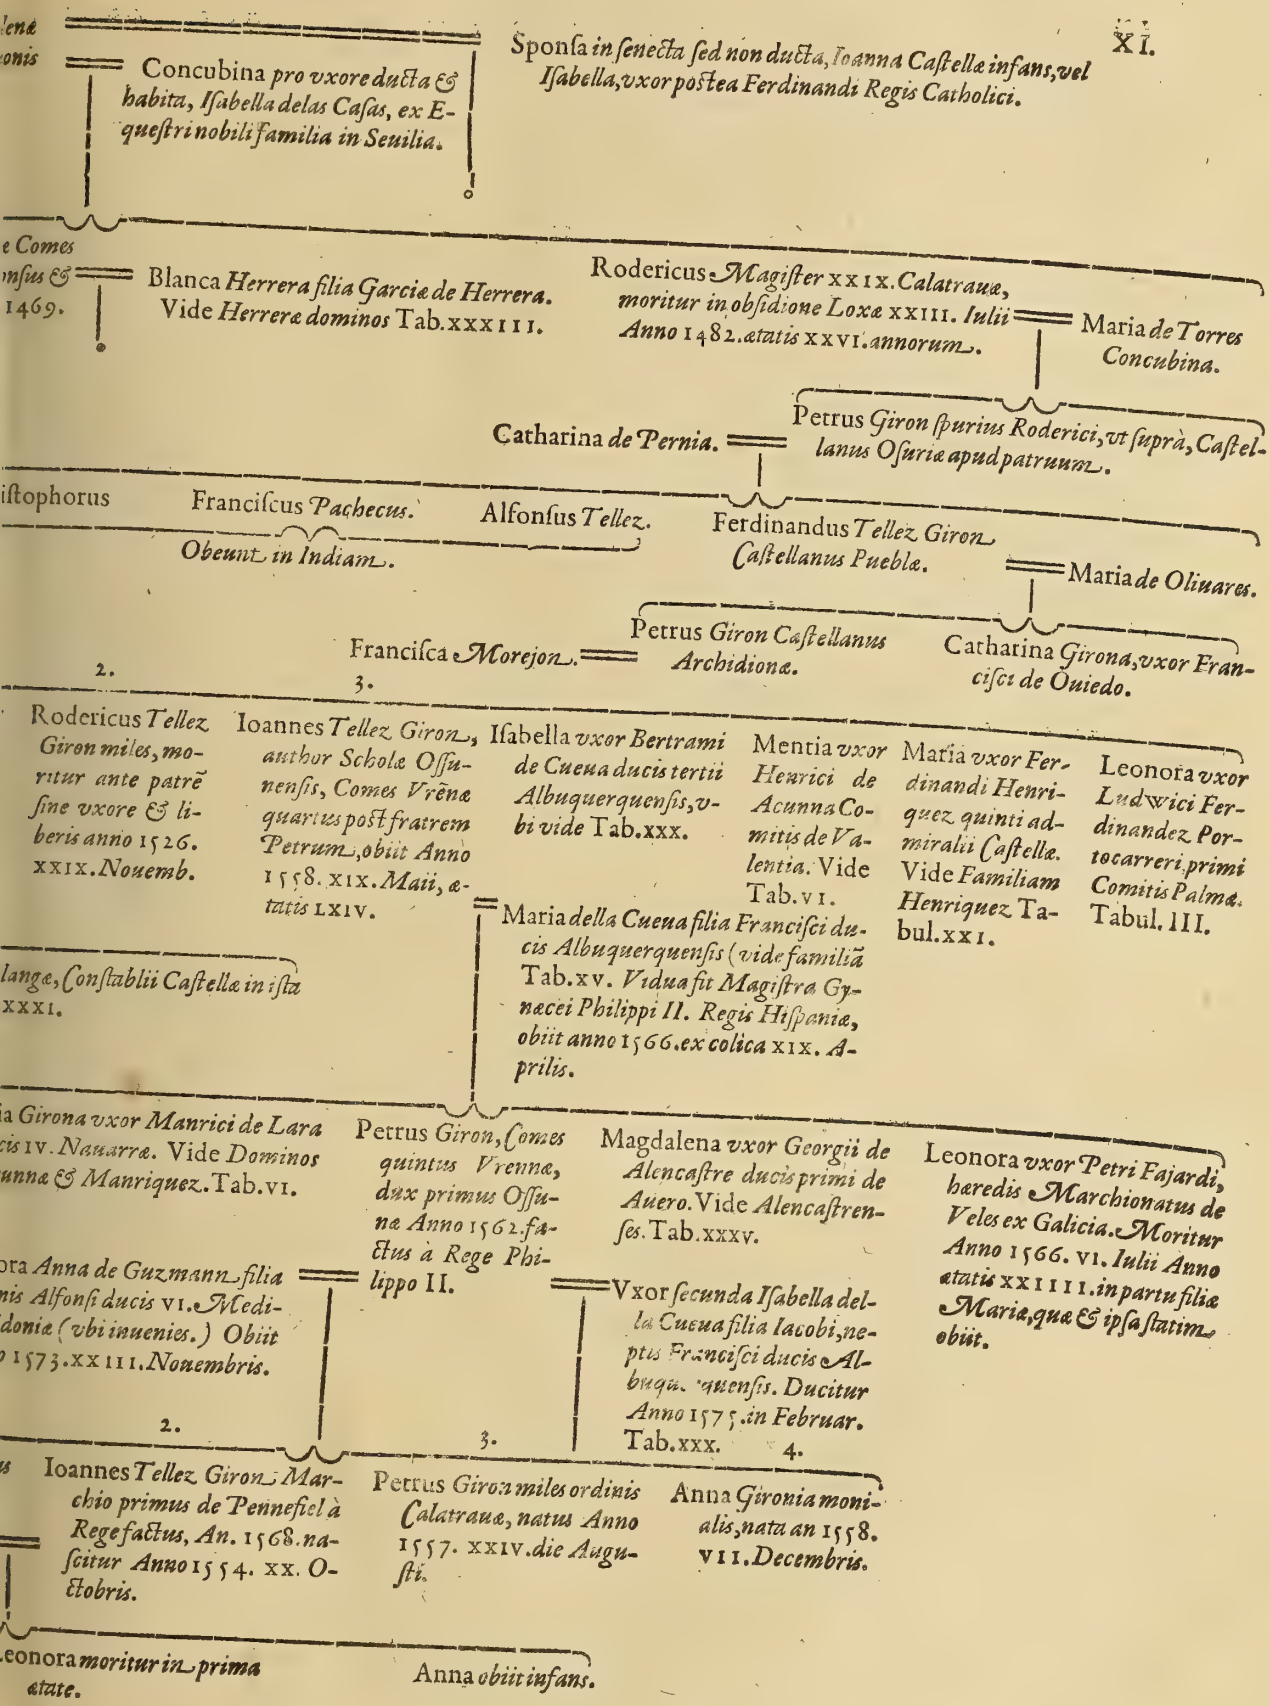 XI.
Sponſa in ſenecta ſed non ducta, Ioanna Caſtellæ infans, vel
Iſabella, vxor poſtea Ferdinandi Regis Catholici.
onis
Concubina pro vxore ducta &
habita, Iſabella delas Caſas, ex E-
queſtri nobili familia in Seuilia.
e Comes
nſus &
1469.
Blanca Herrera filia Garciæ de Herrera.
Vide Herreræ dominos Tab.XXXIII.
Rodericus Magiſter XXIX. Calatrauæ,
moritur in obſidione Loxæ XXIII. Iulii
Anno 1482. ætatis XXVI. annorum.
Maria de Torres
Concubina.
Catharina de Pernia.
Petrus Giron ſpurius Roderici, vt ſuprà, Caſtel-
lanus Oſuriæ apud patruum.
iſtophorus
Franciſcus Pachecus.
Alfonſus Tellez.
Obeunt in Indiam.
Ferdinandus Tellez Giron
Caſtellanus Pueblæ.
Maria de Oliuares.
Franciſca Morejon.
Petrus Giron Caſtellanus
Archidionæ.
Catharina Girona, vxor Fran-
ciſci de Ouiedo.
2.
3.
Rodericus Tellez
Giron miles, mo-
ritur ante patrẽ
ſine vxore & li-
beris anno 1526.
XXIX. Nouemb.
Ioannes Tellez Giron,
author Scholæ Oſſu-
nenſis, Comes Vrẽnæ
quartus poſt fratrem
Petrum, obiit Anno
1558. XIX. Maii, æ-
tatis LXIV.
Iſabella vxor Bertrami
de Cueua ducis tertii
Albuquerquenſis, v-
bi vide Tab.XXX.
Mentia vxor
Henrici de
Acunna Co-
mitis de Va-
lentia. Vide
Tab.VI.
Maria vxor Fer-
dinandi Henri-
quez quinti ad-
miralii Caſtellæ.
Vide Familiam
Henriquez Ta-
bul.XXI.
Leonora vxor
Ludwici Fer-
dinandez Por-
tocarreri primi
Comitis Palmæ.
Tabul. III.
Maria della Cueua filia Franciſci du-
cis Albuquerquenſis (vide familiã
Tab.XV. Vidua fit Magiſtra Gy-
næcei Philippi II. Regis Hiſpaniæ,
obiit anno 1566. ex colica XIX. A-
prilis.
langæ, Conſtablii Caſtellæ in iſta
XXXI.
ia Girona vxor Manrici de Lara
cis IV. Nauarræ. Vide Dominos
unnæ & Manriquez. Tab.VI.
Petrus Giron, Comes
quintus Vrennæ,
dux primus Oſſu-
næ Anno 1562. fa-
ctus à Rege Phi-
lippo II.
Magdalena vxor Georgii de
Alencaſtre ducis primi de
Auero. Vide Alencaſtren-
ſes. Tab.XXXV.
Leonora vxor Petri Fajardi,
hæredis Marchionatus de
Veles ex Galicia. Moritur
Anno 1566. VI. Iulii Anno
ætatis XXIIII. in partu filiæ
Mariæ, quæ & ipſa ſtatim
obiit.
ora Anna de Guzmann filia
nis Alfonſi ducis VI. Medi-
doniæ (vbi inuenies.) Obiit
o 1573. XXIII. Nouembris.
Vxor ſecunda Iſabella del-
la Cueua filia Iacobi, ne-
ptis Franciſci ducis Al-
buqu. quenſis. Ducitur
Anno 1575. in Februar.
Tab.XXX.
2.
3.
4.
us
Ioannes Tellez Giron Mar-
chio primus de Pennefiel à
Rege factus, An. 1568. na-
ſcitur Anno 1554. XX. O-
ctobris.
Petrus Giron miles ordinis
Calatrauæ, natus Anno
1557. XXIV. die Augu-
ſti.
Anna Gironia moni-
alis, nata an 1558.
VII. Decembris.
Leonora moritur in prima
ætate.
Anna obiit infans.